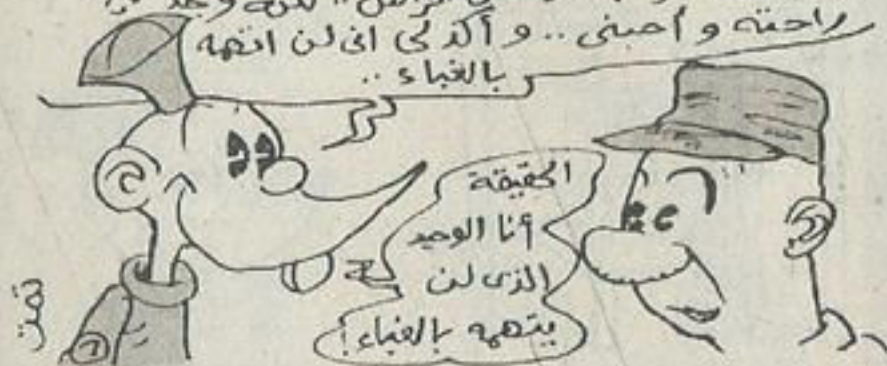 راحته و أحبنى .. و أكد لى انى لن اتهمه
بالغباء ..
الحقيقة
أنا الوحيد
الذى لن
يتهمه بالغباء!